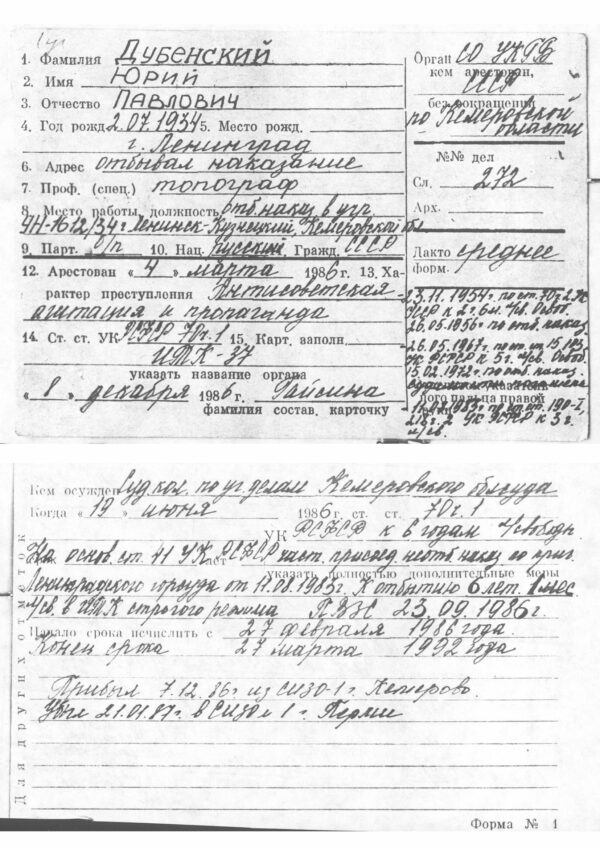 1. Фамилия Дубенский
2. Имя Юрий
3. Отчество Павлович
4. Год рожд. 2.07.1934 5. Место рожд.
г. Ленинград
6. Адрес отбывал наказание
7. Проф. (спец.) топограф
8. Место работы, должность отб. наказ в учр.
УН-1612/34 г. Ленинск-Кузнецкий, Кемеровской обл
9. Парт. б/п 10. Нац. русский Гражд. СССР
12. Арестован « 4 » марта 1986 г. 13. Ха-
рактер преступления Антисоветская
агитация и пропаганда
14. Ст. ст. УК РСФСР 70 ч.1 15. Карт. заполн.
ИТК-37
указать название органа
« 1 » декабря 1986 г. Гайсина
фамилия состав. карточку
Орган СО УКГБ
кем арестован,
СССР
без сокращения
по Кемеровской
области
№№ дел
Сл. 272
Арх.
Дакто среднее
форм.
23.11.1954 г. по ст. 70 ч.2 УК
РСФСР к 2 г. 6 м. л/св. Освоб.
26.05.1956 г. по отб. наказ.
26.05.1967 г. по ст. ст. 15, 103
УК РСФСР к 5 г. л/св. Освоб.
15.02.1972 г. по отб. наказ.
ного пальца правой
11.08.1983 г. по ст. ст. 190-1,
218 ч. 2 УК РСФСР к 3 г.
л/св.
Кем осужден Суд. кол. по уг. делам Кемеровского облсуда
Когда « 19 » июня 1986 г. ст. ст. 70 ч.1
УК РСФСР к 6 годам л/свободы.
На основ. ст. 41 УК РСФСР част. присоед. неотб. наказ по приг.
указать полностью дополнительные меры
Ленинградского горсуда от 11.08.1983 г. К отбытию 6 лет 1 мес.
л/св. в ИТК строгого режима ПВЖ 23.09.1986 г.
Начало срока исчислить с 27 февраля 1986 года
Конец срока 27 марта 1992 года
Прибыл 7.12.86 г. из СИЗО-1 г. Кемерово.
Убыл 21.01.87 г. в СИЗО № 1 г. Перми
Для других отметок
Форма № 1